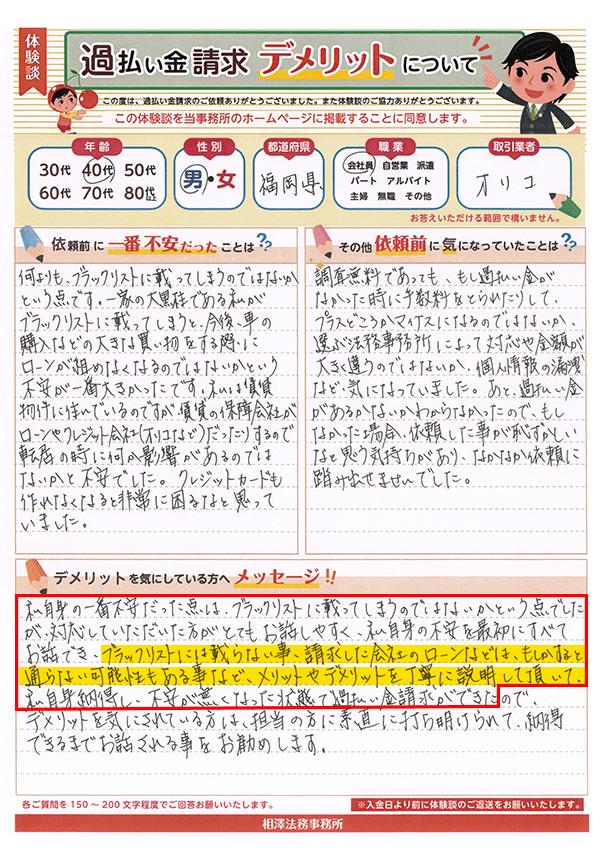 体験談
過払い金請求 デメリットについて
この度は、過払い金請求のご依頼ありがとうございました。また体験談のご協力ありがとうございます。
この体験談を当事務所のホームページに掲載することに同意します。
年齢
30代 40代 50代
60代 70代 80代
性別
男・女
都道府県
福岡県
職業
会社員 自営業 派遣
パート アルバイト
主婦 無職 その他
取引業者
オリコ
お答えいただける範囲で構いません。
依頼前に一番不安だったことは??
何よりも、ブラックリストに載ってしまうのではないか
という点です。一家の大黒柱である私が
ブラックリストに載ってしまうと、今後、車の
購入などの大きな買い物をする際に
ローンが組めなくなるのではないかという
不安が一番大きかったです。私は賃貸
物件に住んでいるのですが、賃貸の保障会社が
ローンやクレジット会社(オリコなど)だったりするので
転居の時に何か影響があるのでは
ないかと不安でした。クレジットカードも
作れなくなると非常に困るなと思って
いました。
その他依頼前に気になっていたことは??
調査無料であっても、もし過払い金が
なかった時に手数料をとられたりして、
プラスどころかマイナスになるのではないか、
選ぶ法務事務所によって対応や金額が
大きく違うのではないか、個人情報の漏洩
など、気になっていました。あと、過払い金
があるかないかわからなかったので、もし
なかった場合、依頼した事が恥ずかしい
なと思う気持ちがあり、なかなか依頼に
踏み出せませんでした。
デメリットを気にしている方へメッセージ!!
私自身の一番不安だった点は、ブラックリストに載ってしまうのではないかという点でした
が、対応していただいた方がとてもお話しやすく、私自身の不安を最初にすべて
お話でき、ブラックリストには載らない事、請求した会社のローンなどは、もしかすると
通らない可能性もある事など、メリットやデメリットを丁寧に説明して頂いて、
私自身納得し、不安が無くなった状態で過払い金請求ができたので、
デメリットを気にされている方は、担当の方に素直に打ち明けられて、納得
できるまでお話される事をお勧めします。
各ご質問を150〜200文字程度でご回答お願いいたします。
※入金日より前に体験談のご返送をお願いいたします。
相澤法務事務所